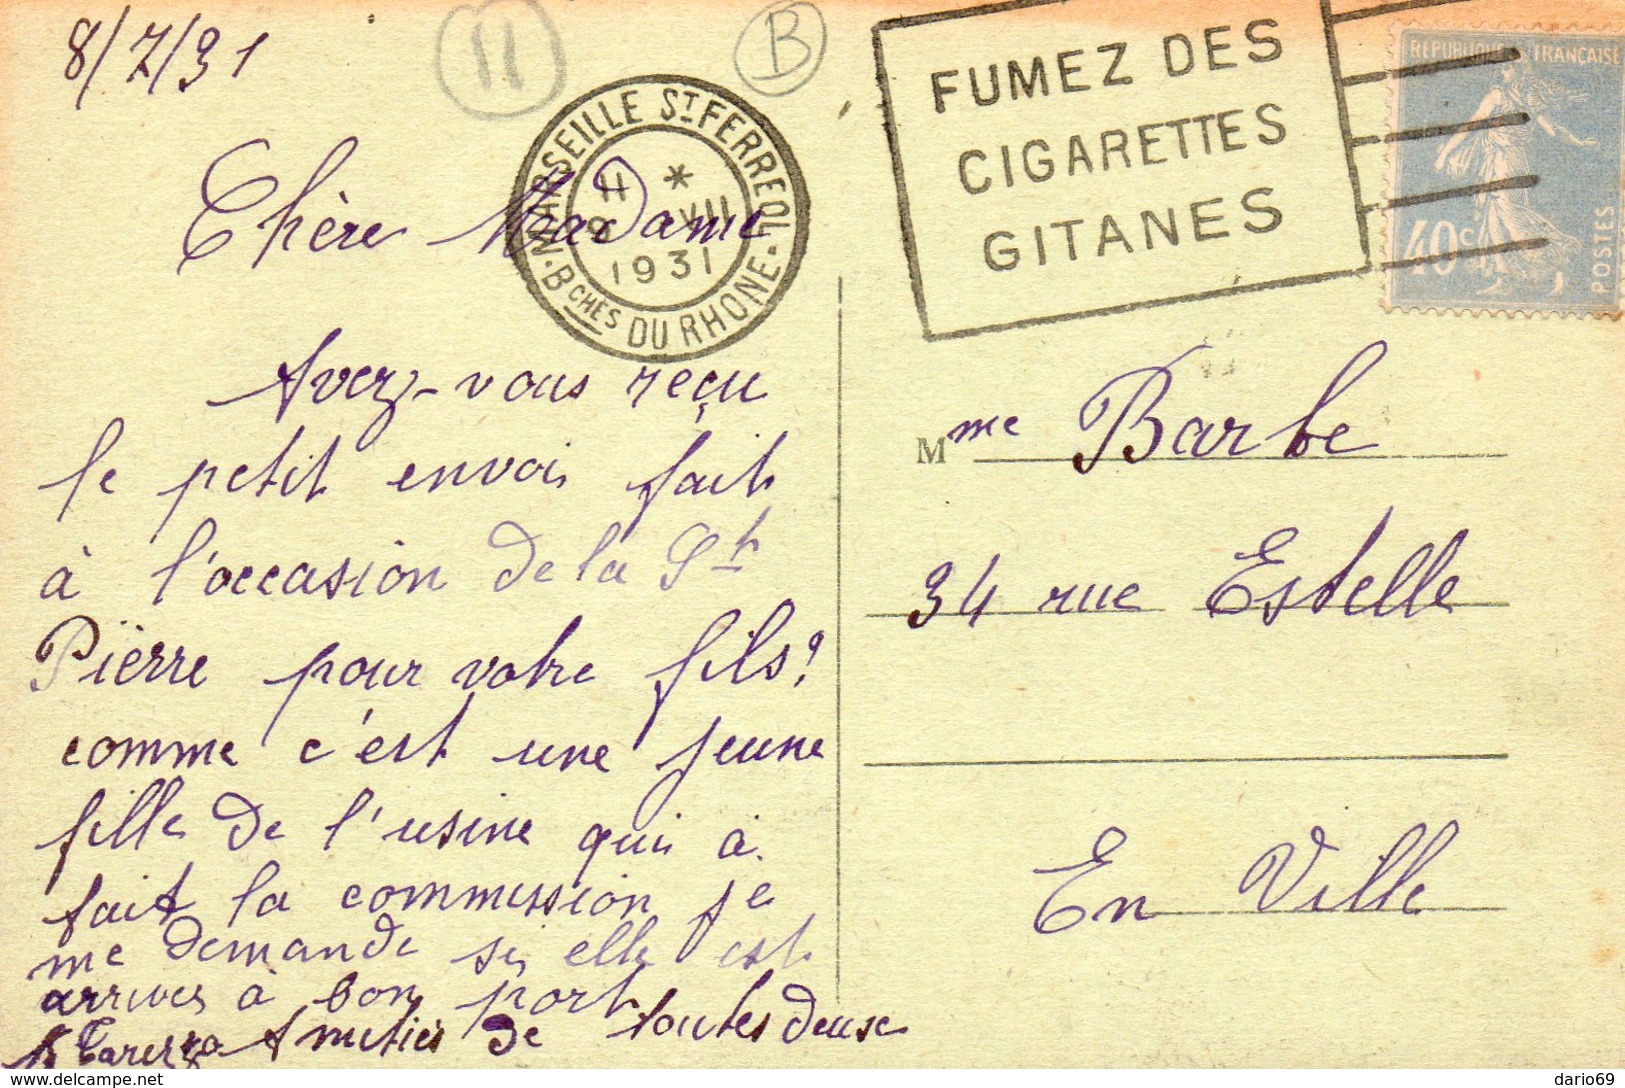 8/7/31
11
B
MARSEILLE ST FERREOL
11 *
8 VII
1931
Bches DU RHONE
FUMEZ DES
CIGARETTES
GITANES
REPUBLIQUE FRANCAISE
40c
POSTES
Chère Madame
Avez-vous reçu
le petit envoi fait
à l'occasion de la St
Pierre pour votre fils?
comme c'est une jeune
fille de l'usine qui à
fait la commission je
me demande si elle est
arrivés à bon port
Amitiés de toutes deuse
Mme Barbe
34 rue Estelle
En Ville
dario69